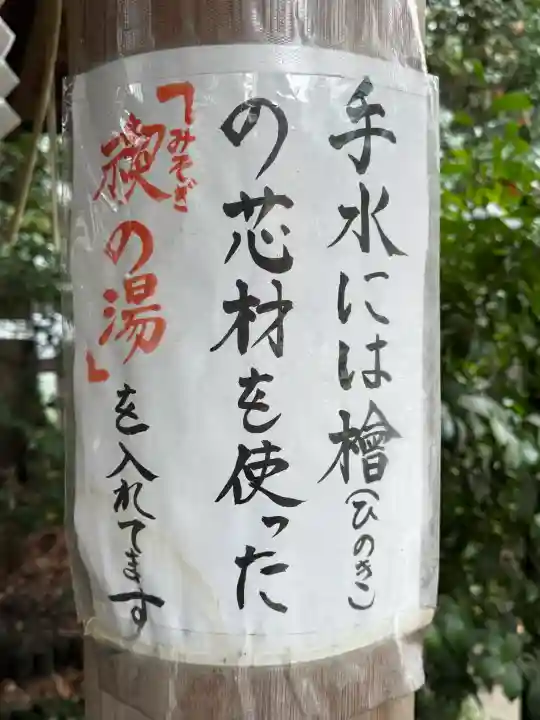 手水には檜(ひのき)
の芯材を使った
「禊(みそぎ)の湯」を入れてます